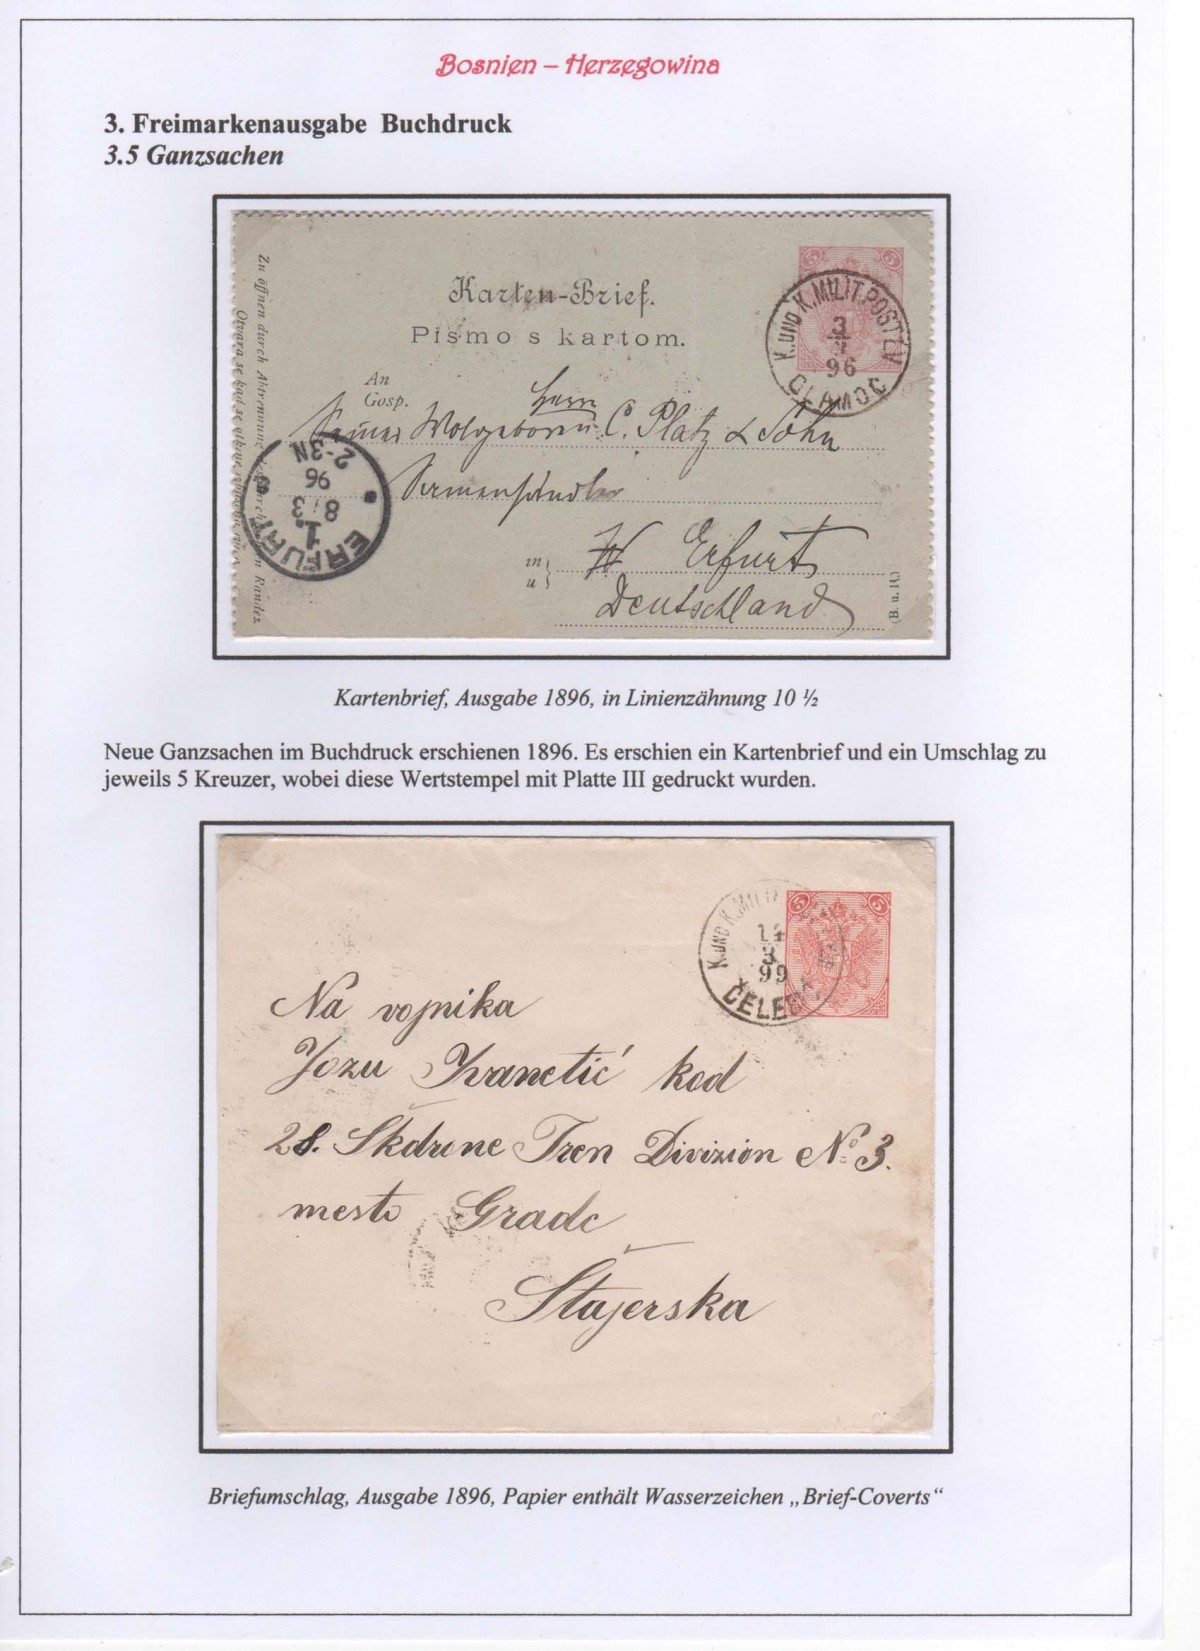 Bosnien – Herzegowina
3. Freimarkenausgabe Buchdruck
3.5 Ganzsachen
Zu öffnen durch Abtrennung des durch Randes.
Otvara se kad se otkine
Karten-Brief.
Pismo s kartom.
5 5
K. UND K. MILIT. POST LV
3
96
GLAMOČ
An
Gosp.
Herrn
Wolgeboren C. Platz & Sohn
in
u
Erfurt
Deutschland
(B. u. H.)
ERFURT
1.
8 3
96
2-3N
Kartenbrief, Ausgabe 1896, in Linienzähnung 10 ½
Neue Ganzsachen im Buchdruck erschienen 1896. Es erschien ein Kartenbrief und ein Umschlag zu
jeweils 5 Kreuzer, wobei diese Wertstempel mit Platte III gedruckt wurden.
5 5
K. UND K. MILIT.
14
3
99
ČELEBIĆ
Na vojnika
Jozu Ivanetić kod
28. Skdrone Tren Divizion No 3.
mesto Gradc
Štajerska
Briefumschlag, Ausgabe 1896, Papier enthält Wasserzeichen „Brief-Coverts“